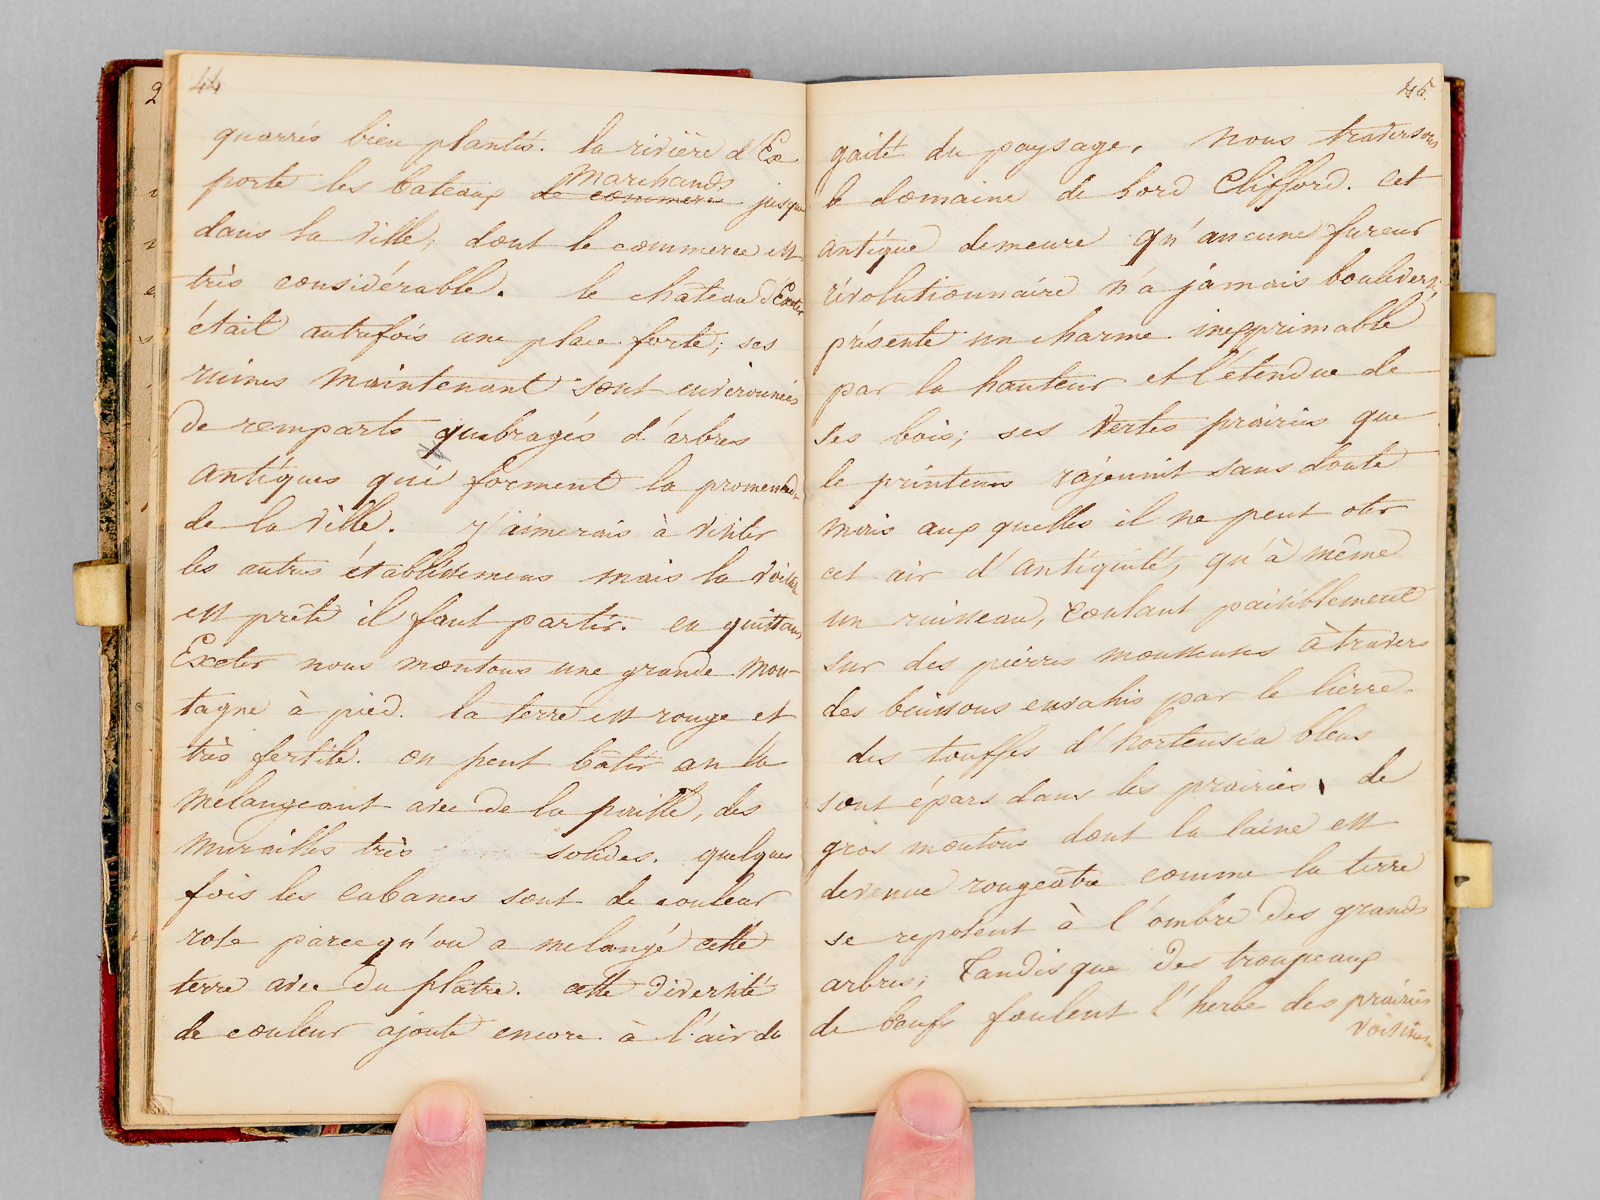 44
quarrés bien plantés. la rivière d'Ex
porte les bateaux de commerce Marchands jusque
dans la ville, dont le commerce est
très considérable. le château d'Exeter
était autrefois une place forte; ses
ruines maintenant sont environnées
de remparts ombragés d'arbres
antiques qui forment la promenade
de la ville. J'aimerais à visiter
les autres établissemens mais la voiture
est prête il faut partir. en quittant
Exeter nous montons une grande mon-
tagne à pied. la terre est rouge et
très fertile. on peut bâtir en la
mélangeant avec de la paille, des
murailles très solides. quelques
fois les cabanes sont de couleur
rose parcequ'on a melangé cette
terre avec du plâtre. cette diversité
de couleur ajoute encore à l'air de
45.
gaité du paysage. Nous traversons
le domaine de Lord Clifford. cet
antique demeure qu'aucune fureur
révolutionnaire n'a jamais bouleversé,
présente un charme inexprimable
par la hauteur et l'étendue de
ses bois; ses vertes prairies que
le printems rajeunit sans doute
mais aux quelles il ne peut oter
cet air d'antiquité, qu'à même
un ruisseau, coulant paisiblement
sur des pierres mousseuses à travers
des buissons envahis par le lierre.
des touffes d'hortensia bleus
sont épars dans les prairies, de
gros moutons dont la laine est
devenue rougeatre comme la terre
se reposent à l'ombre des grands
arbres; Tandis que des troupeaux
de bœufs foulent l'herbe des prairies
voisines.
2